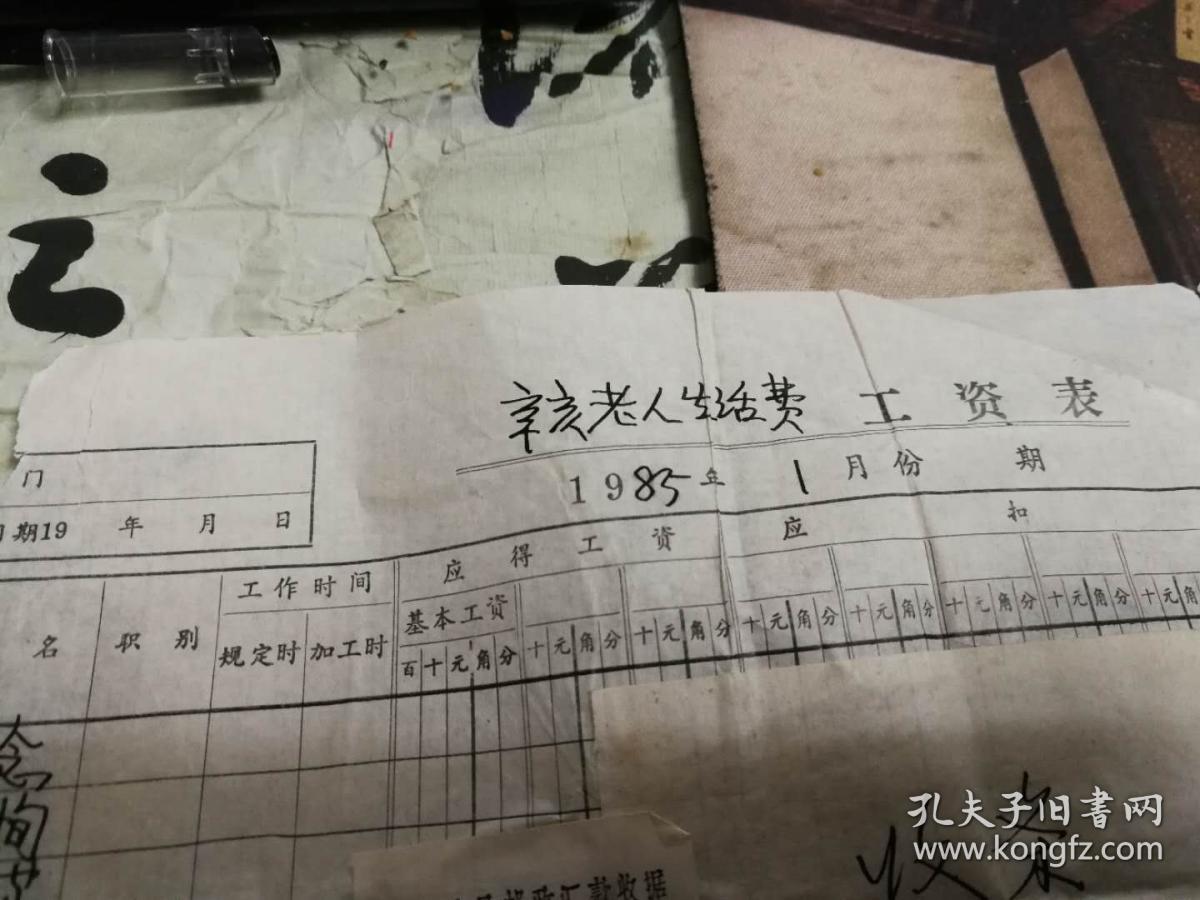 辛亥老人生活费 工资表
1985年 1月份 期
门
期19 年 月 日
应得工资 应扣
名 职别 工作时间 基本工资
规定时 加工时 百十元角分 十元角分 十元角分 十元角分 十元角分 十元角分 十元角分 十元角
念
恂
收条
邮政汇款收据
孔夫子旧书网
www.kongfz.com